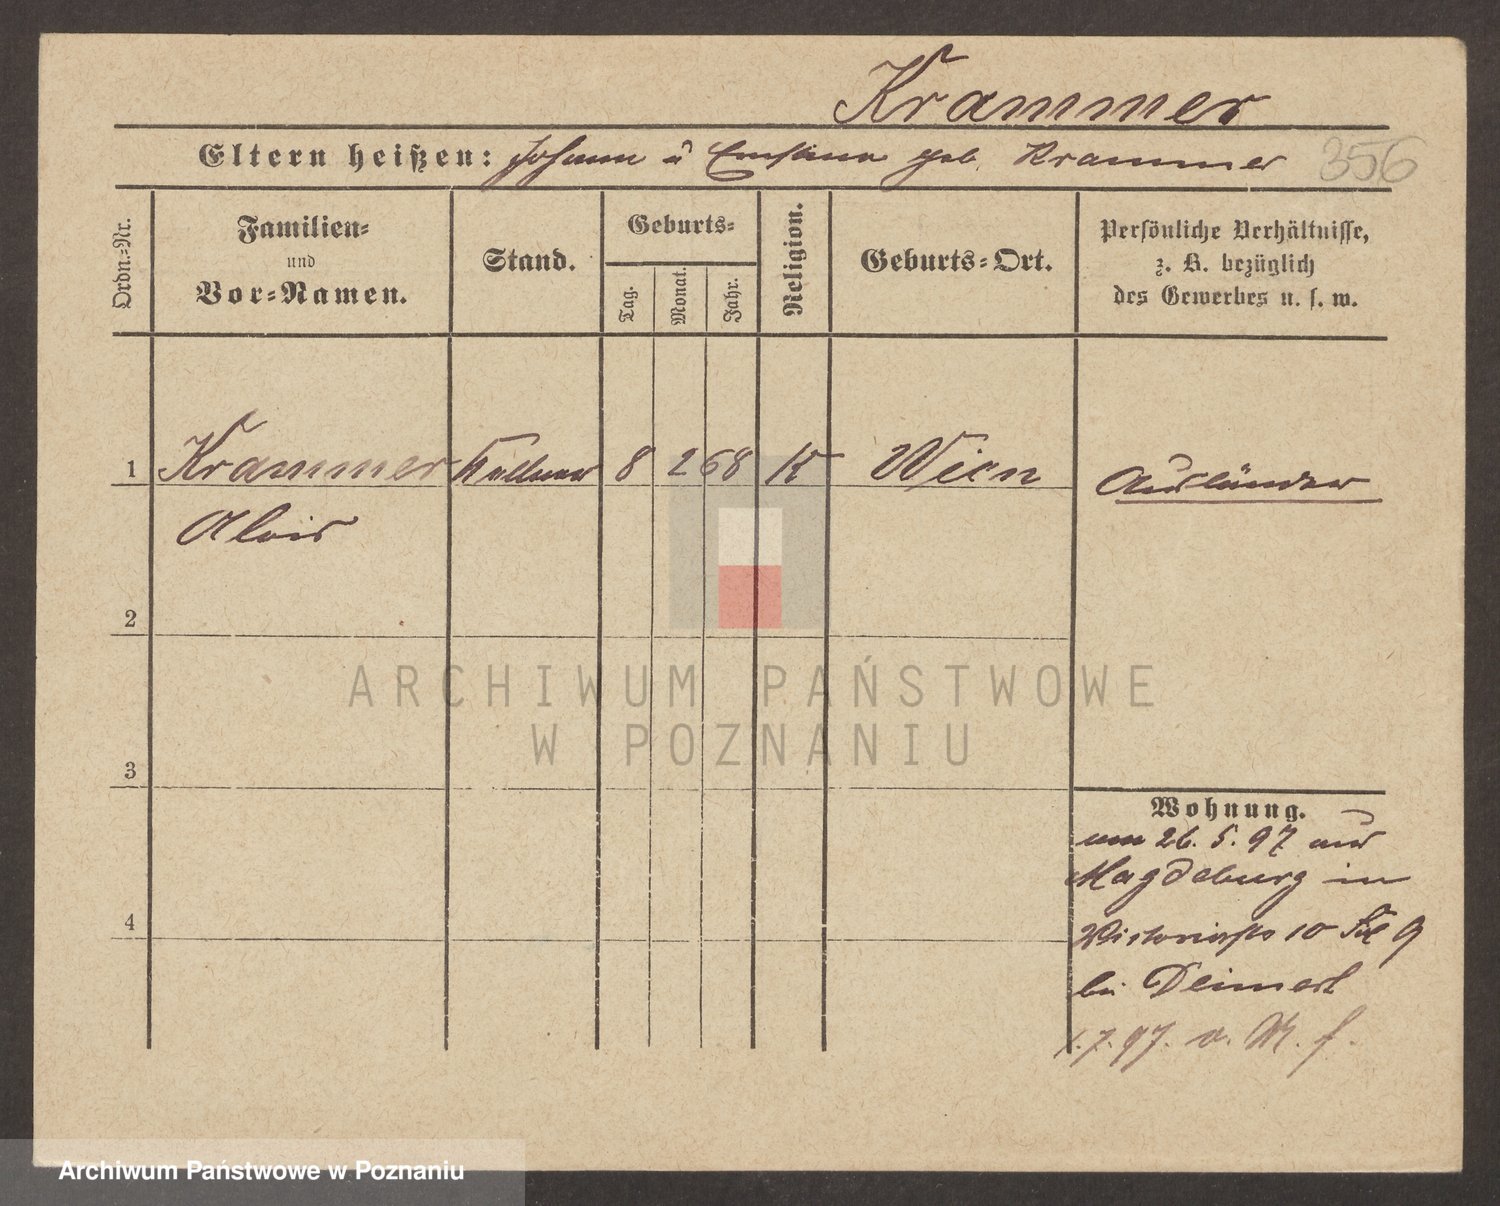 Krammer
Eltern heißen: Johann u Ernstine geb. Krammer 356
Ordn.-Nr.
Familien-
und
Vor-Namen.
Stand.
Geburts-
Tag.
Monat.
Jahr.
Religion.
Geburts-Ort.
Persönliche Verhältnisse,
z. B. bezüglich
des Gewerbes u. s. w.
1 Krammer Kellner 8 2 68 K Wien Ausländer
Alois
2
3
4
Wohnung.
am 26. 5. 97 aus
Magdeburg in
Victoriastr 10
bei
7. 97. v. M. f.
ARCHIWUM PAŃSTWOWE
W POZNANIU
Archiwum Państwowe w Poznaniu